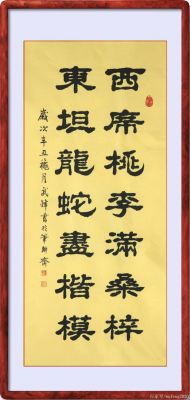 西席桃李滿桑梓
東坦龍蛇盡楷模
歲次辛丑穐月武悼書於筆耕齋